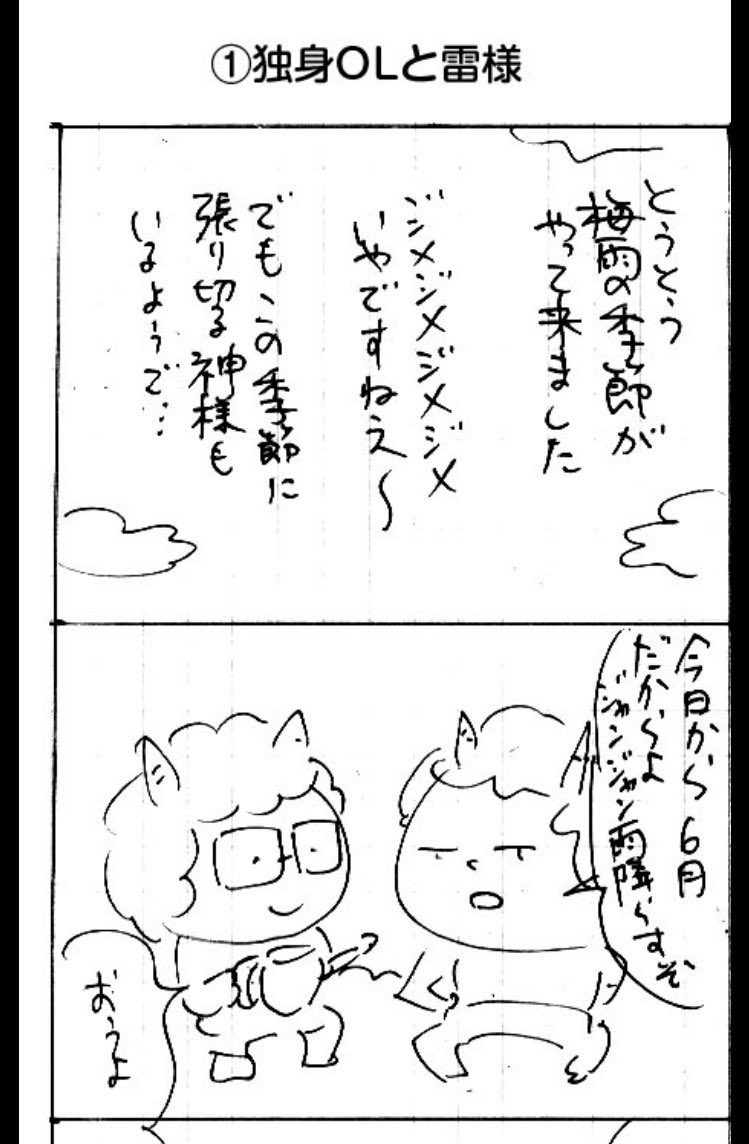 ①独身OLと雷様
とうとう
梅雨の季節が
やって来ました
ジメジメジメジメ
いやですねえ〜
でもこの季節に
張り切る神様も
いるようで…
今日から6月
だからよ
ジャンジャン雨降らすぞ
おうよ